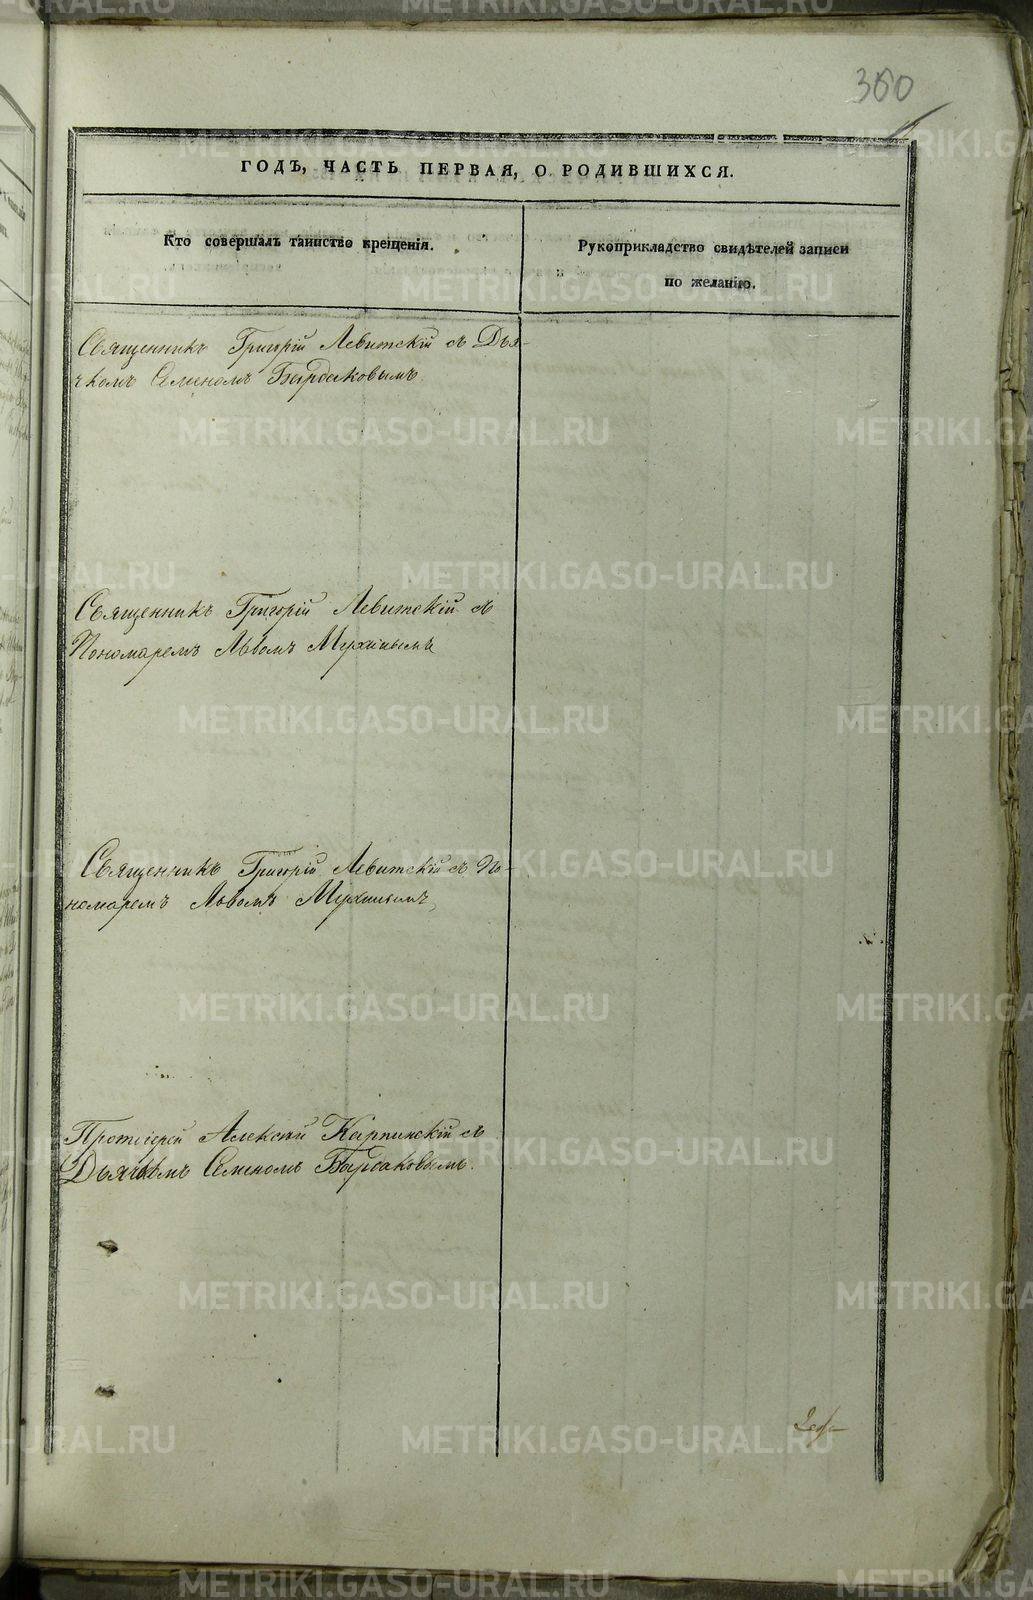 360
ГОДЪ, ЧАСТЬ ПЕРВАЯ, О РОДИВШИХСЯ.
Кто совершалъ таинство крещенія.
Рукоприкладство свидѣтелей записи
по желанію.
Священникъ Григорій Левитскій съ Дья-
чкомъ Семеномъ Бардаковымъ.
Священникъ Григорій Левитскій съ
Пономаремъ Львомъ Мухинымъ
Священникъ Григорій Левитскій съ По-
номаремъ Львомъ Мухинымъ,
Протоіерей Алексѣй Карпинскій съ
Дьячкомъ Семеномъ Бардаковымъ.
METRIKI.GASO-URAL.RU